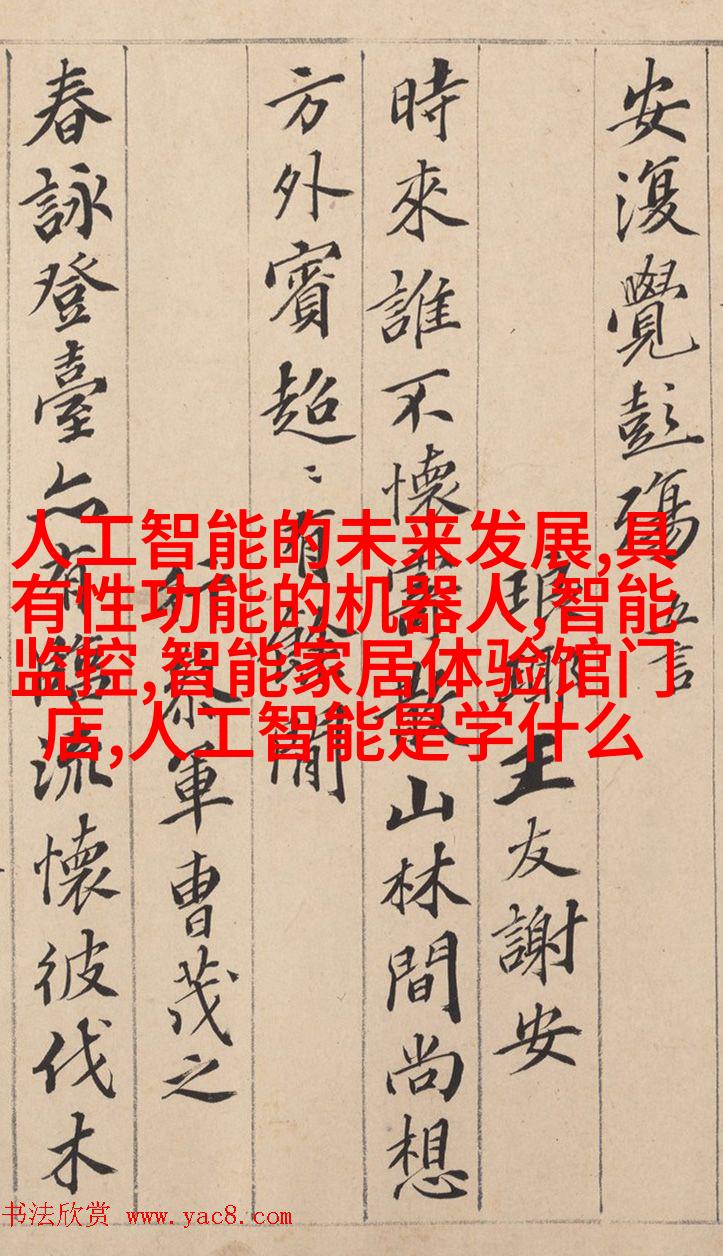 安復覺彭殤 五言
琅瑘王友謝安
時來誰不懷寄散山林間尚想
方外賓超〻有餘閒
行參軍曹茂之
春詠登臺亦有臨流懷彼伐木
人工智能的未来发展,具
有性功能的机器人,智能
监控,智能家居体验馆门
店,人工智能是学什么
书法欣赏 www.yac8.com